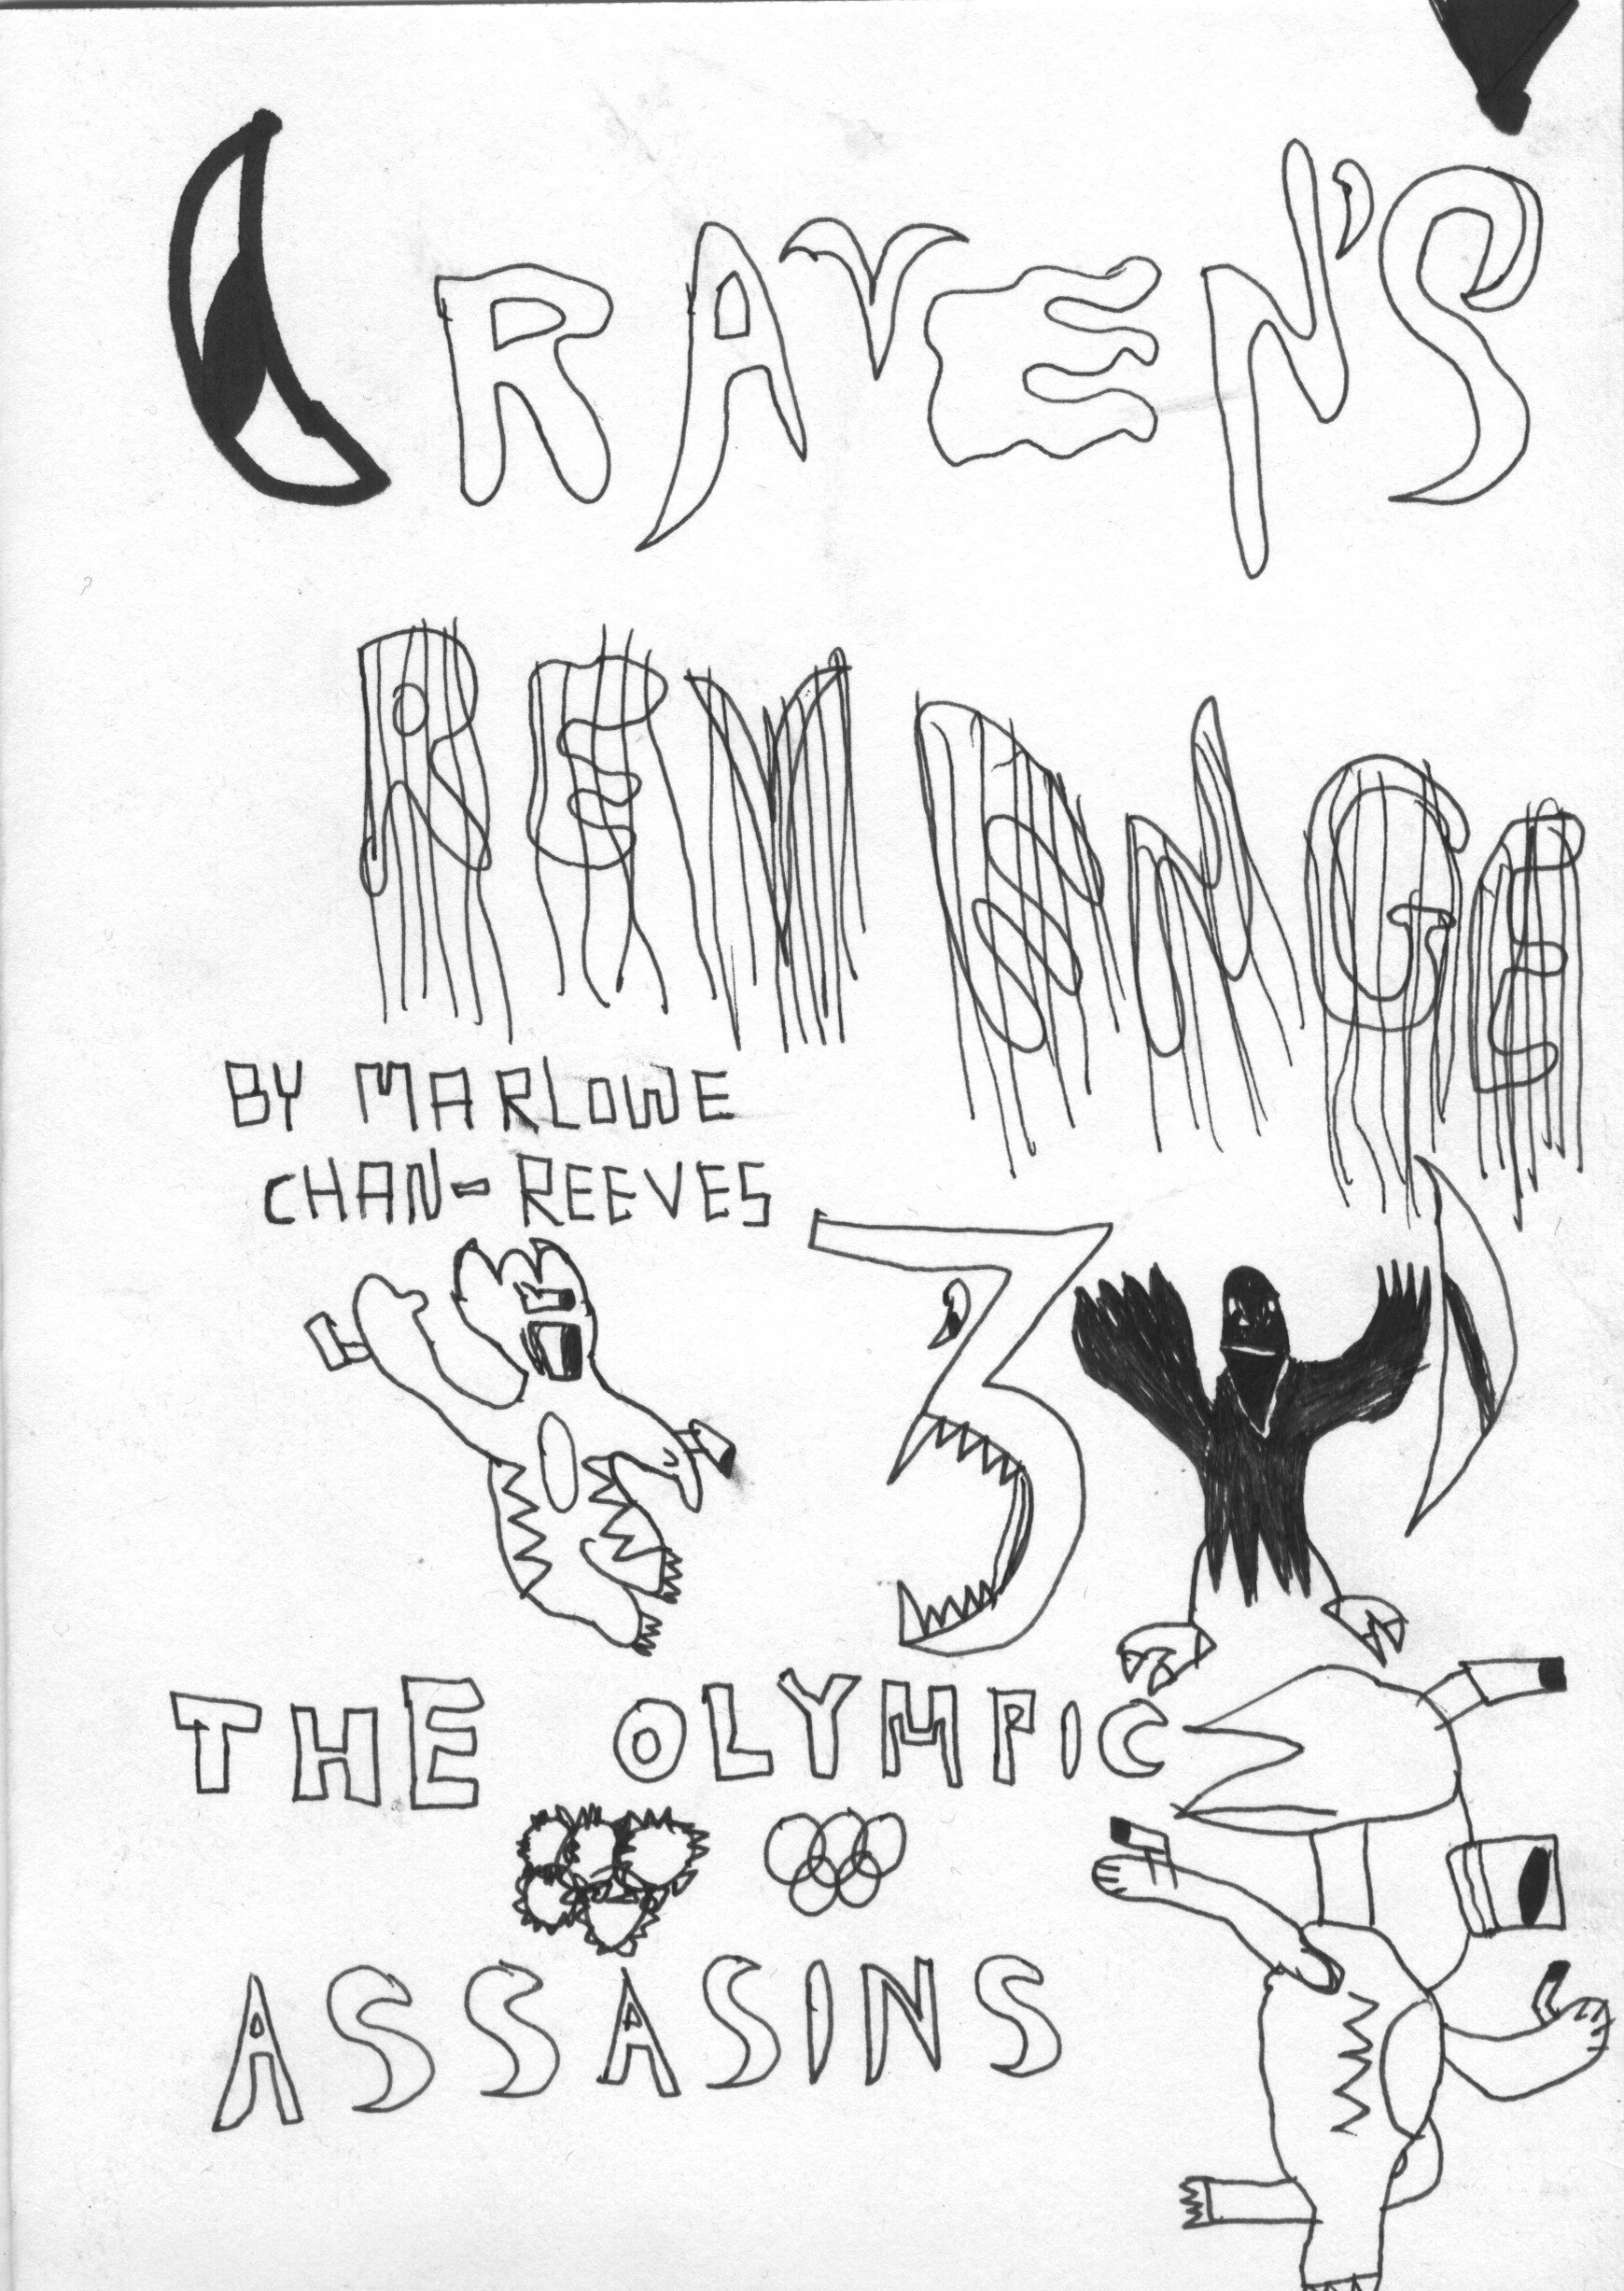 RAVEN'S
REVENGE
BY MARLOWE
CHAN-REEVES
3
THE OLYMPIC
ASSASINS